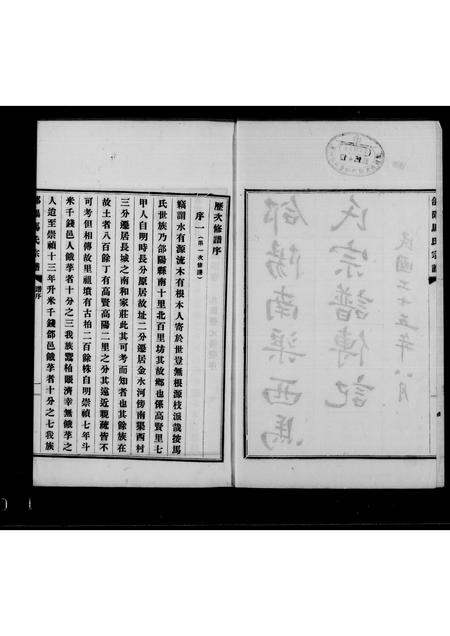 民國二十五年八月
郃陽南渠西馬
氏宗譜傳記
歷次修譜序
序一（第一次修譜）
竊謂水有源流木有根本人寄於世豈無根源枝派哉按馬
氏世族乃郃陽縣南十里北百里坊其故鄉也係高賢里七
甲人自明時長分原居故址二分遷居金水河傍南渠西村
三分遷居長城之南和家莊此其可考而知者也其餘族在
故土者八百餘丁有高賢高陽二里之分其遠近親疏皆不
可考但相傳故里祖墳有古柏二百餘株自明崇禎七年斗
米千錢邑人餓莩者十分之三我族鬻柏賑濟幸無餓莩之
人迨至崇禎十三年升米千錢郃邑餓莩者十分之七我族
譜序